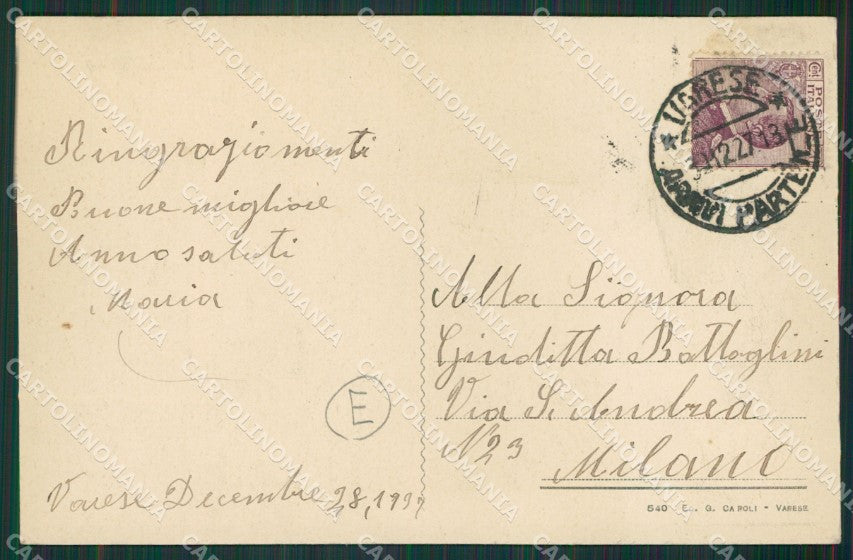 Ringraziamenti
Buone migliore
Anno saluti
Maria
E
Varese Decembre 28, 1927
Alla Signora
Giuditta Battaglini
Via S. Andrea
N 23
Milano
540 Ed. G. Caroli - Varese
VARESE
12.27.13
ARRIVI PARTENZE
Cent
POS
ITAL
CARTOLINOMANIA